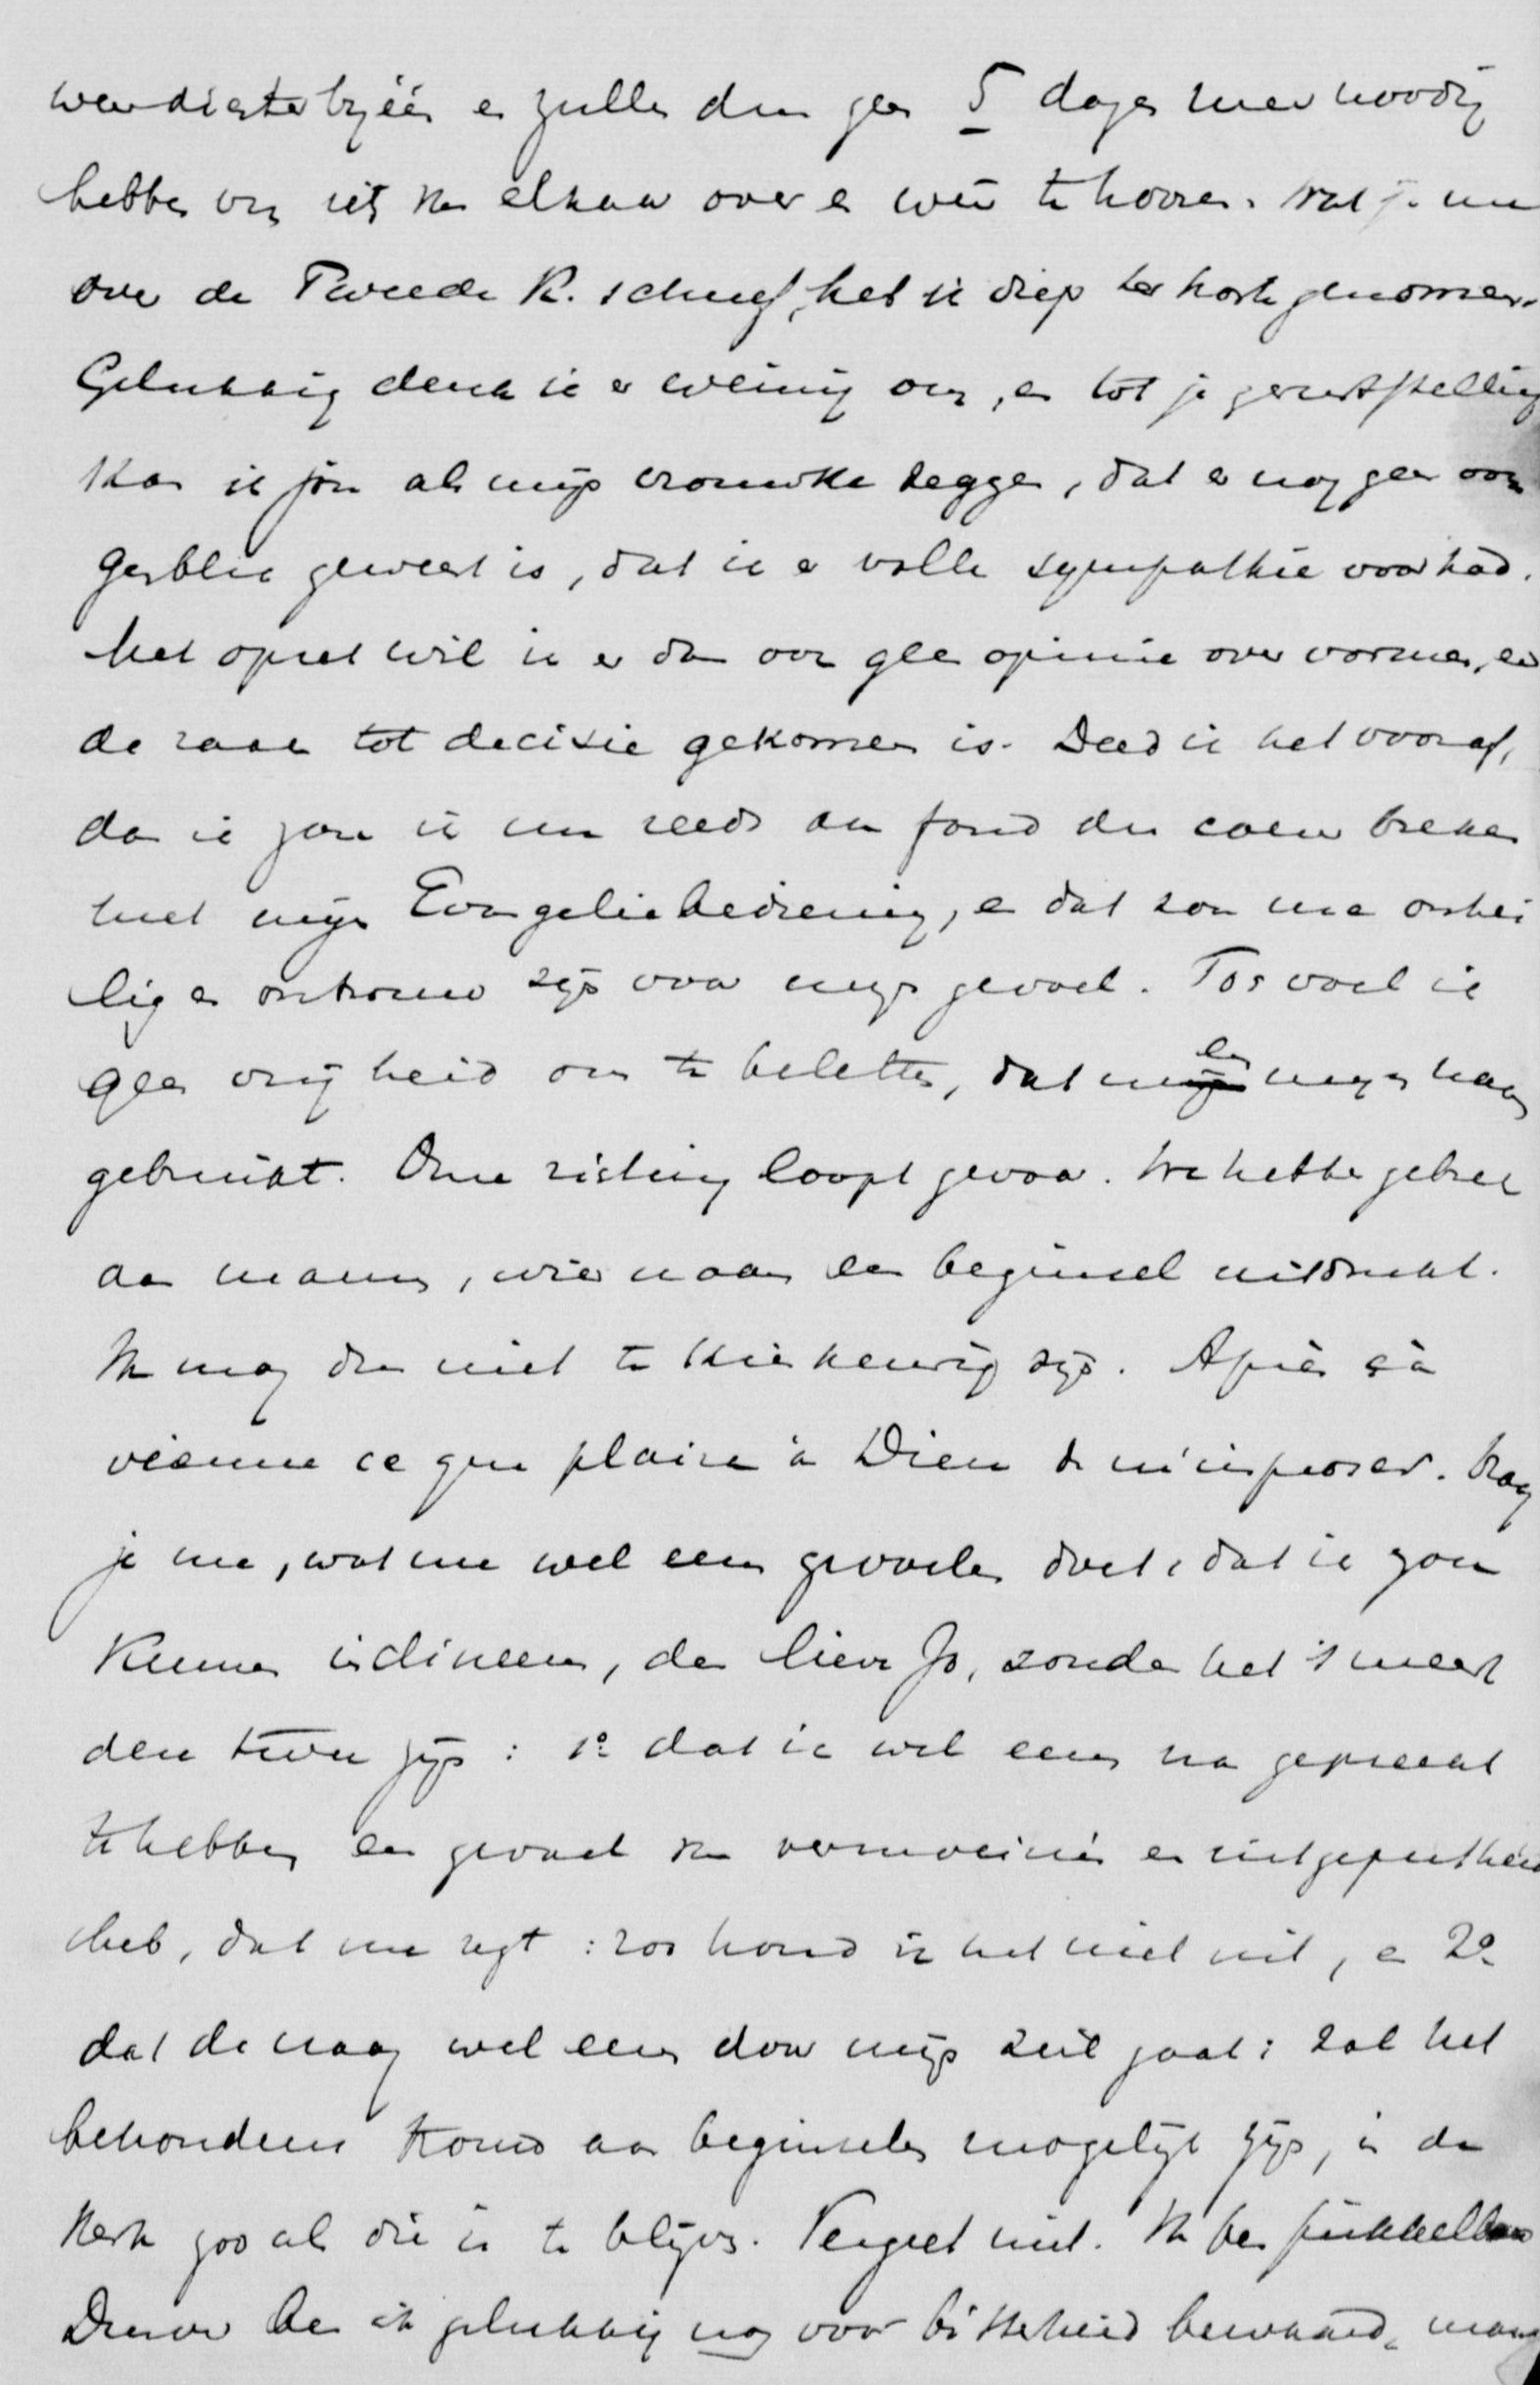 hebben om iets van elkaar over en weer te hooren. Wat je me
over de Tweede K. schreef, heb ik diep ter harte genomen.
Gelukkig denk ik er weinig om, en tot je geruststelling
kan ik jou als mijn vrouwke zeggen, dat er nog geen oogen
genblik geweest is, dat ik er volle sympathie voor had.
Met opzet wil ik er dan ook geen opinie over vormen, eer
de zaak tot decisie gekomen is. Deed ik het vooraf,
dan zou ik nu reeds au fond du coeur breken
met mijn Evangeliebediening, en dat zou me onhei
lig en ontrouw zijn voor mijn gevoel. Toch voel ik
geen vrijheid om te beletten, dat men mijn naam
gebruikt. Onze richting loopt gevaar. We hebben gebrek
aan mannen, wier naam een beginsel uitdrukt.
Ik mag dus niet te kieskeurig zijn. Après ça
vienne ce que plaira à Dieu de m'imposer. Vraag
je me, wat me wel eens gevoelen doet, dat ik zou
kunnen inclineeren, dan lieve Jo, zouden het 't meest
deze twee zijn: 1º dat ik wel eens na gepreekt
te hebben een gevoel van vermoeienis en uitgeputheid
heb, dat me zegt: zoo houd ik het niet uit, en 2º
dat de vraag wel eens door mijn ziel gaat: zal het
behoudens trouw aan beginselen mogelijk zijn, in de
Kerk zoo als die is te blijven. Vergeet niet. Ik ben prikkelbaar
ben ik gelukkig nog voor bitterheid bewaard, maar